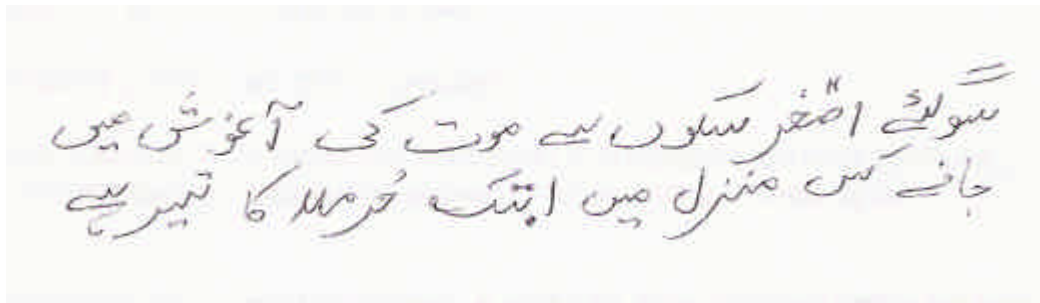 سوگئے اصغر سکوں سے موت کی آغوش میں
جانے کس منزل میں ابتک حُرملا کا تیر ہے